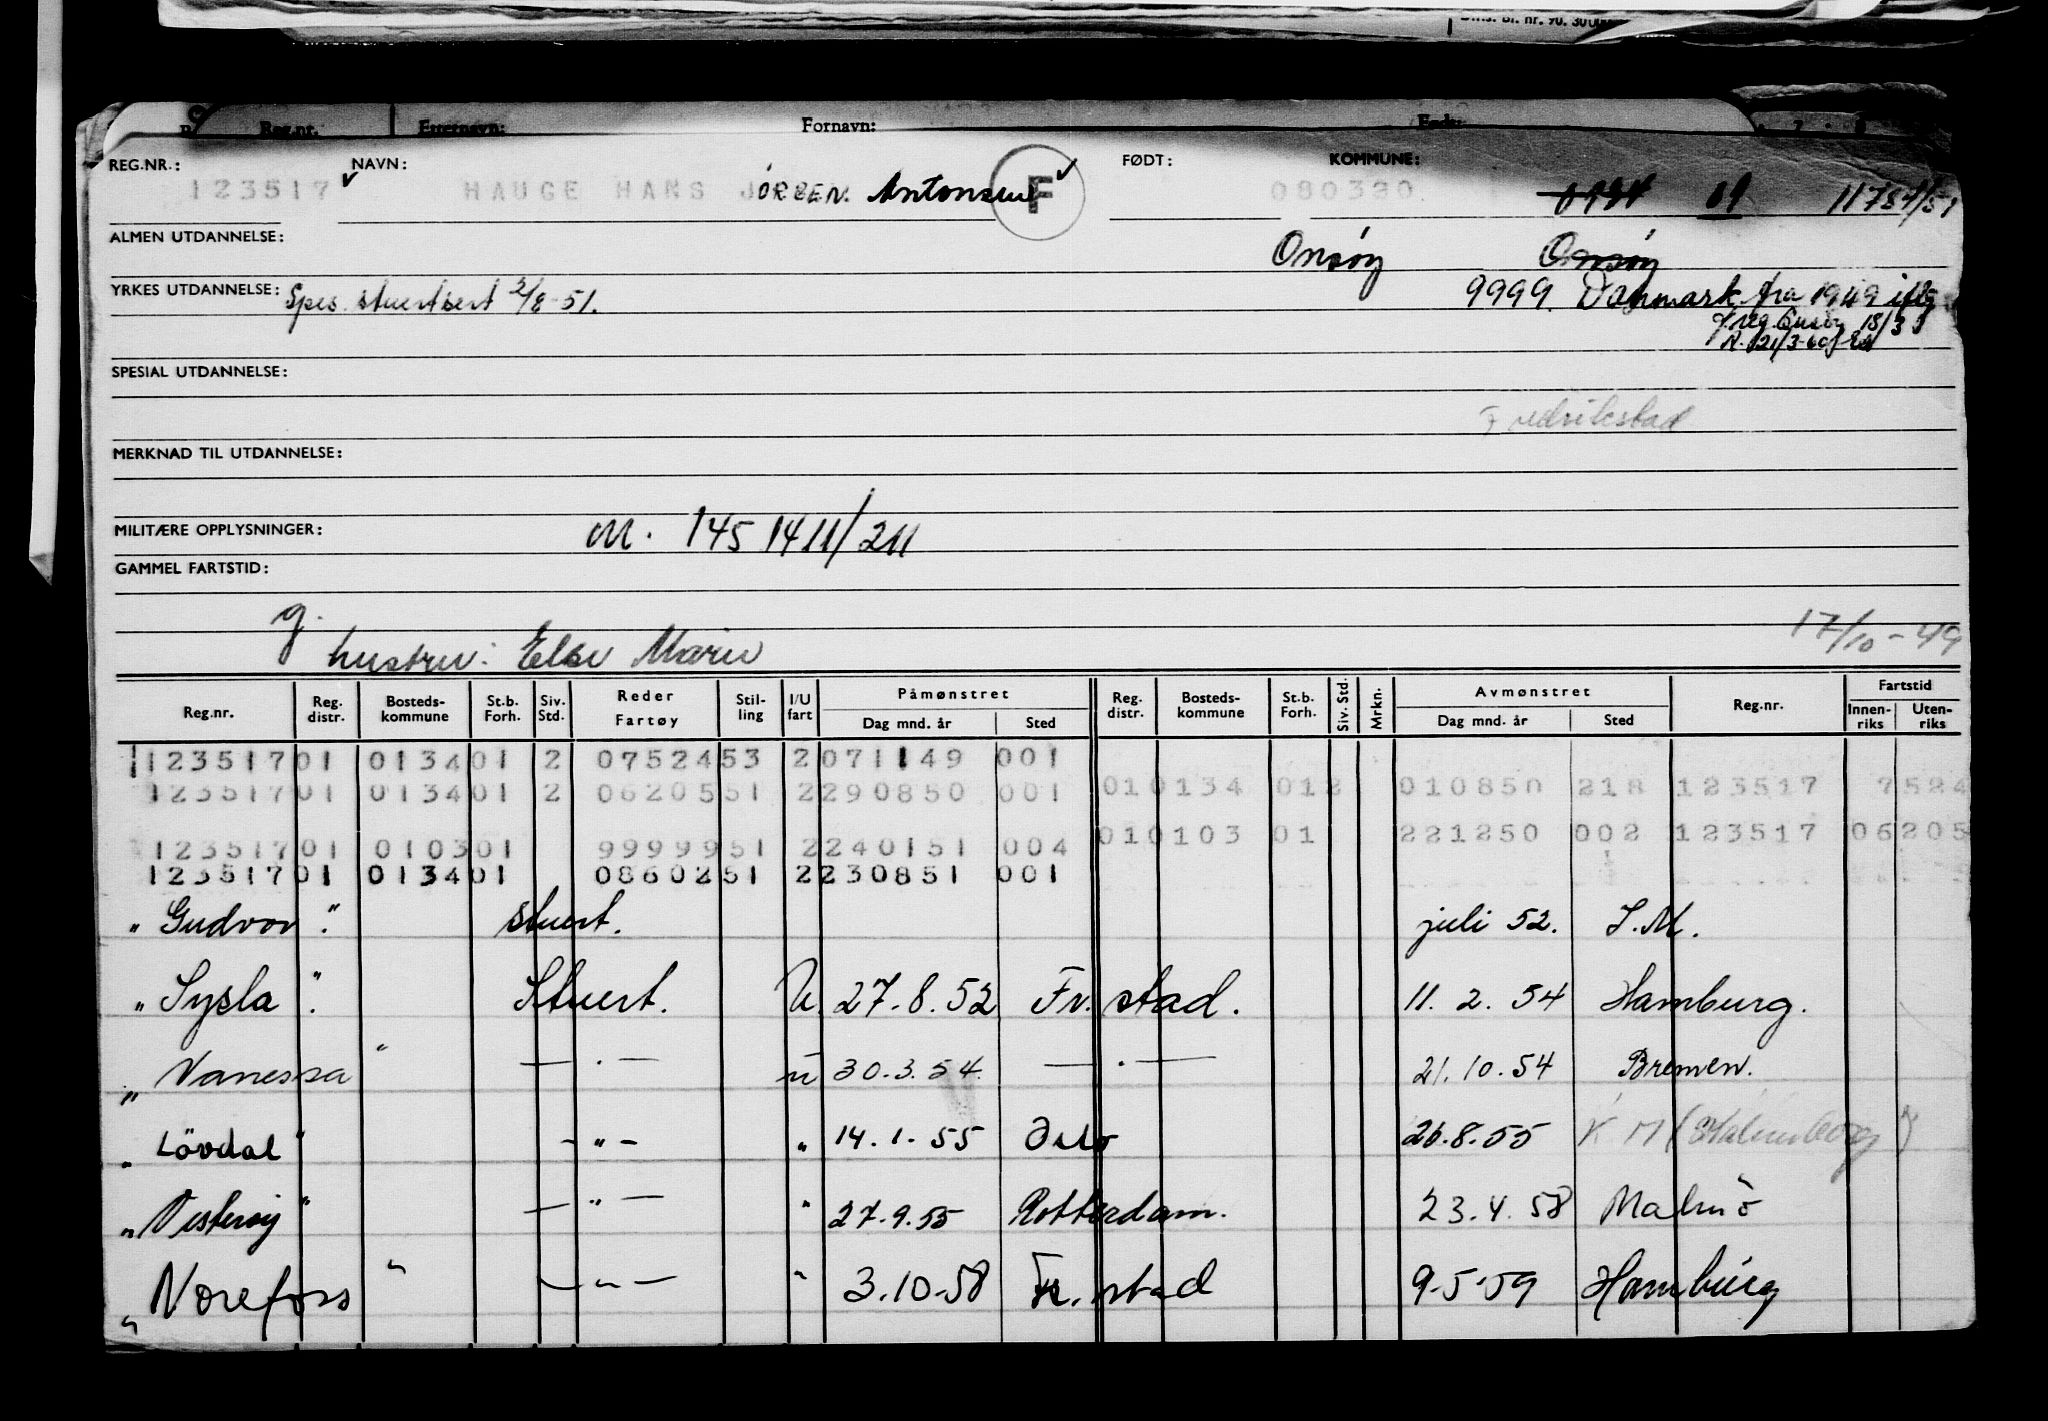 Reg.nr. Etternavn: Fornavn: Født:
REG.NR.: NAVN: FØDT: KOMMUNE:
123517 HAUGE HANS JØRGEN. Antonsen F 080330 0134 01 11784/51
ALMEN UTDANNELSE: Onsøy Onsøy
YRKES UTDANNELSE: Spes. stuertsert 2/8-51. 9999. Danmark fra 1949 iflg
freg Onsøy 18/3
SPESIAL UTDANNELSE:
Fredrikstad
MERKNAD TIL UTDANNELSE:
MILITÆRE OPPLYSNINGER: M. 145 1411/211
GAMMEL FARTSTID:
g. 17/10-49
hustru: Else Marie
Reg.nr. Reg. distr. Bosteds-kommune St.b. Forh. Siv. Std. Reder Fartøy Stil-ling I/U fart Påmønstret Dag mnd. år Sted Reg. distr. Bosteds-kommune St.b. Forh. Siv. Std. Mrkn. Avmønstret Dag mnd. år Sted Reg.nr. Fartstid Innen-riks Uten-riks
123517 01 0134 01 2 07524 53 2 071149 001
123517 01 0134 01 2 06205 51 2 290850 001 01 0134 01 2 010850 218 123517 7524
123517 01 0103 01 99999 51 2 240151 004 01 0103 01 221250 002 123517 06205
123517 01 0134 01 08602 51 2 230851 001
" Gudvor " stuert. juli 52. S.M.
" Sysla " Stuert. U. 27.8.52 Fr.stad. 11.2.54 Hamburg.
" Vanessa " — . — u 30.3.54. — . — 21.10.54 Bremen.
" Lövdal " - " - " 14.1.55 Oslo 26.8.55 K M
" Vesterøy " — " — " 27.9.55 Rotterdam. 23.4.58 Malmö
" Norefoss " — " — " 3.10.58 Fr.stad 9-5-59 Hamburg